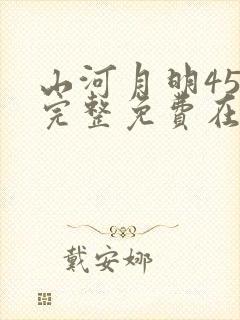 山河月明45
完整免费在
戴安娜